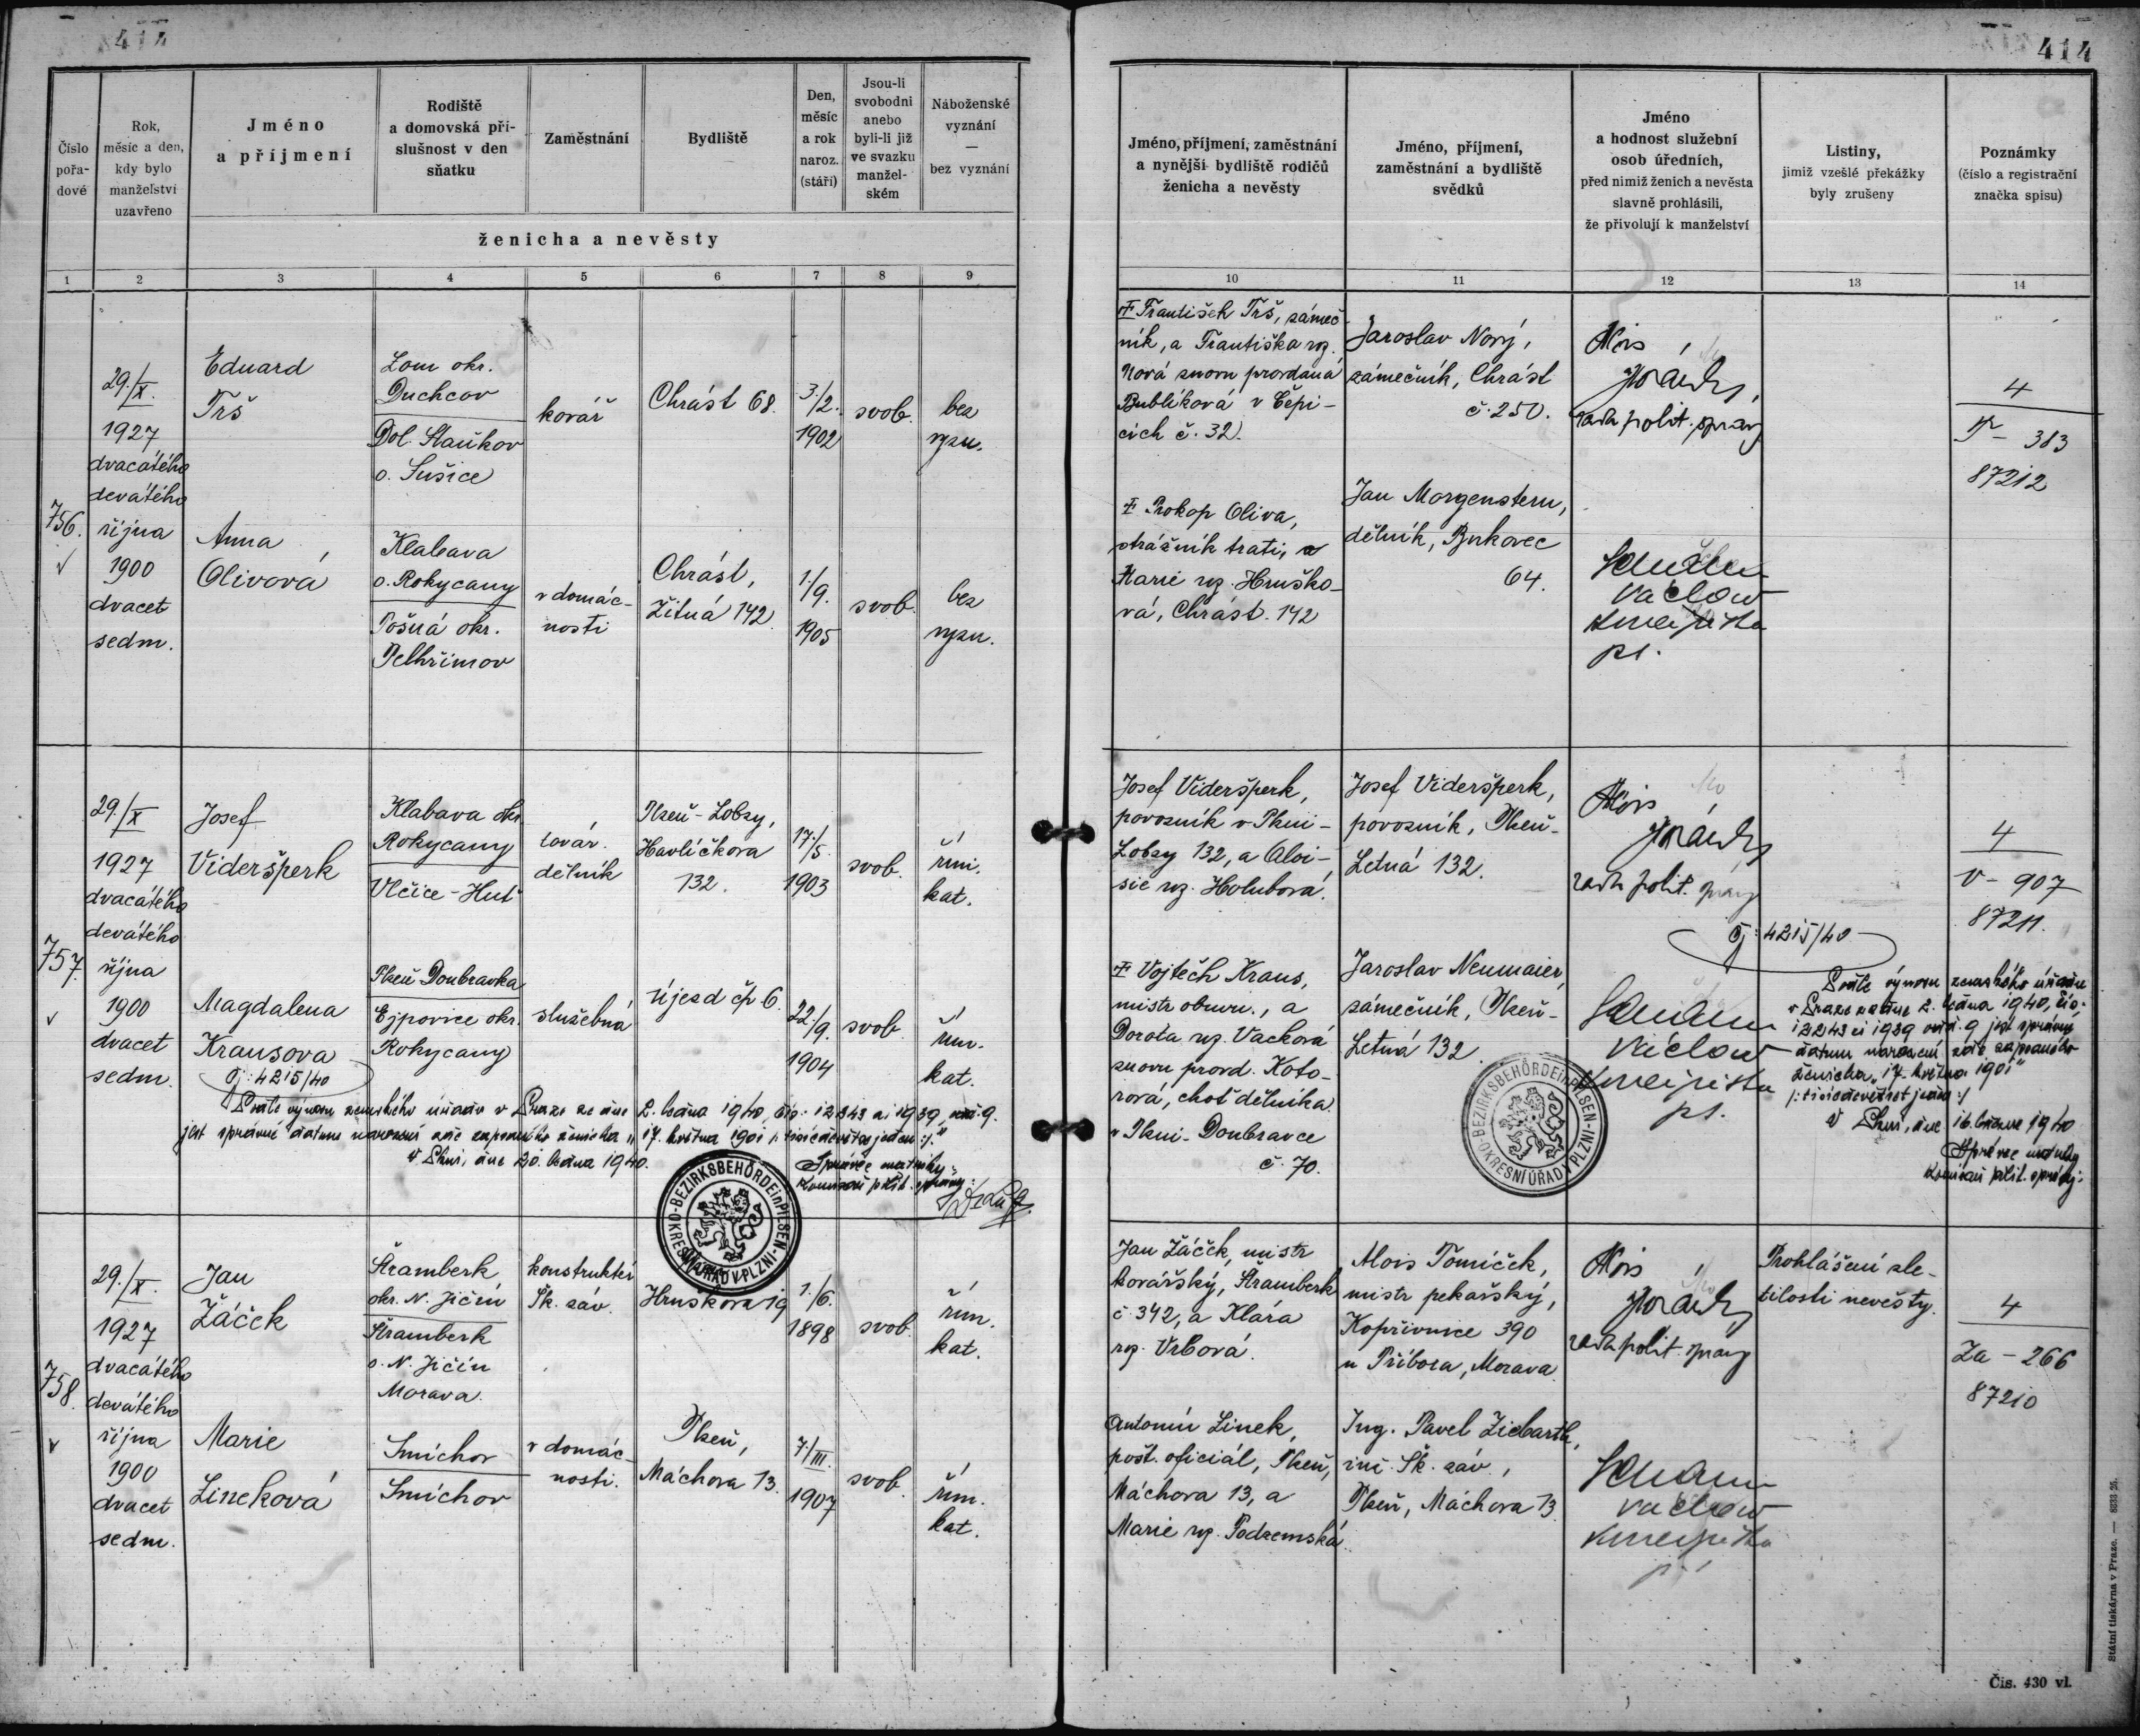 414
414
Číslo
pořa-
dové
Rok,
měsíc a den,
kdy bylo
manželství
uzavřeno
Jméno
a příjmení
Rodiště
a domovská pří-
slušnost v den
sňatku
Zaměstnání
Bydliště
Den,
měsíc
a rok
naroz.
(stáří)
Jsou-li
svobodni
anebo
byli-li již
ve svazku
manžel-
ském
Náboženské
vyznání
—
bez vyznání
ženicha a nevěsty
1 2 3 4 5 6 7 8 9
Jméno, příjmení, zaměstnání
a nynější bydliště rodičů
ženicha a nevěsty
Jméno, příjmení,
zaměstnání a bydliště
svědků
Jméno
a hodnost služební
osob úředních,
před nimiž ženich a nevěsta
slavně prohlásili,
že přivolují k manželství
Listiny,
jimiž vzešlé překážky
byly zrušeny
Poznámky
(číslo a registrační
značka spisu)
10 11 12 13 14
756.
29./X.
1927
dvacátého
devátého
října
1900
dvacet
sedm.
Eduard
Trš
Lom okr.
Duchcov
Dol. Staňkov
o. Sušice
kovář
Chrást 68.
3./2.
1902
svob.
bez
vyzn.
Anna
Olivová
Klabava
o. Rokycany
Pošná okr.
Pelhřimov
v domác-
nosti
Chrást,
Žitná 142
1./9.
1905
svob.
bez
vyzn.
† František Trš, zámeč-
ník, a Františka roz.
Nová znovu provdaná
Bublíková v Čepi-
cích č. 32.
Jaroslav Nový,
zámečník, Chrást
č. 250.
Alois
rada polit. správy
4
T - 383
87212
† Prokop Oliva,
strážník trati, a
Marie roz. Hruško-
vá, Chrást 142
Jan Morgenstern,
dělník, Bukovec
64.
Václav
757.
29./X
1927
dvacátého
devátého
října
1900
dvacet
sedm.
Josef
Videršperk
Klabava okr.
Rokycany
Vlčice-Huť
továr.
dělník
Plzeň-Lobzy,
Havlíčkova
132.
17./5.
1903
svob.
řím.
kat.
Magdalena
Krausova
čj: 4215/40
Plzeň Doubravka
Ejpovice okr.
Rokycany
služebná
Újezd čp 6.
22./9.
1904
svob.
řím.
kat.
Podle výnosu zemského úřadu v Praze ze dne 2. ledna 1940, čís: 12843 ai 1939, odd. 9.
jest správné datum narození zde zapsaného ženicha "17. května 1901 /: tisícdevětsetjeden :/."
V Plzni, dne 20. ledna 1940.
Správce matriky:
Komisař polit. správy:
BEZIRKSBEHÖRDE in PILSEN - OKRESNÍ ÚŘAD V PLZNI
Josef Videršperk,
povozník v Plzni-
Lobzy 132, a Aloi-
sie roz. Holubová.
Josef Videršperk,
povozník, Plzeň-
Letná 132.
Alois
rada polit. správy
4
V - 907
87211.
čj: 4215/40
† Vojtěch Kraus,
mistr obuvn., a
Dorota roz. Vacková
znovu provd. Koto-
rová, choť dělníka
v Plzni-Doubravce
č. 70.
Jaroslav Neumaier,
zámečník, Plzeň-
Letná 132.
Václav
Podle výnosu zemského úřadu
v Praze ze dne 2. ledna 1940, čís:
12243 ai 1939 odd. 9 jest správné
datum narození zde zapsaného
ženicha "17. května 1901"
/: tisícdevětsetjeden :/
V Plzni, dne 16. března 1940
Správce matriky
Komisař polit. správy:
BEZIRKSBEHÖRDE in PILSEN - OKRESNÍ ÚŘAD V PLZNI
758.
29./X.
1927
dvacátého
devátého
října
1900
dvacet
sedm.
Jan
Žáček
Štramberk
okr. N. Jičín
Štramberk
o. N. Jičín
Morava.
konstruktér
Šk. záv.
Hruškova 19
1./6.
1898
svob.
řím.
kat.
Marie
Lineková
Smíchov
Smíchov
v domác-
nosti.
Plzeň,
Máchova 13.
7./III.
1907
svob.
řím.
kat.
Jan Žáček, mistr
kovářský, Štramberk
č. 342, a Klára
roz. Vrbová.
Alois Tomíček,
mistr pekařský,
Kopřivnice 390
u Příbora, Morava
Alois
rada polit. správy
Prohlášení zle-
tilosti nevěsty.
4
Za - 266
87210
Antonín Linek,
pošt. oficiál, Plzeň,
Máchova 13, a
Marie roz. Podzemská.
Ing. Pavel Ziebarth,
inž. Šk. záv.,
Plzeň, Máchova 13.
Václav
Státní tiskárna v Praze. — 8333 26.
Čís. 430 vl.